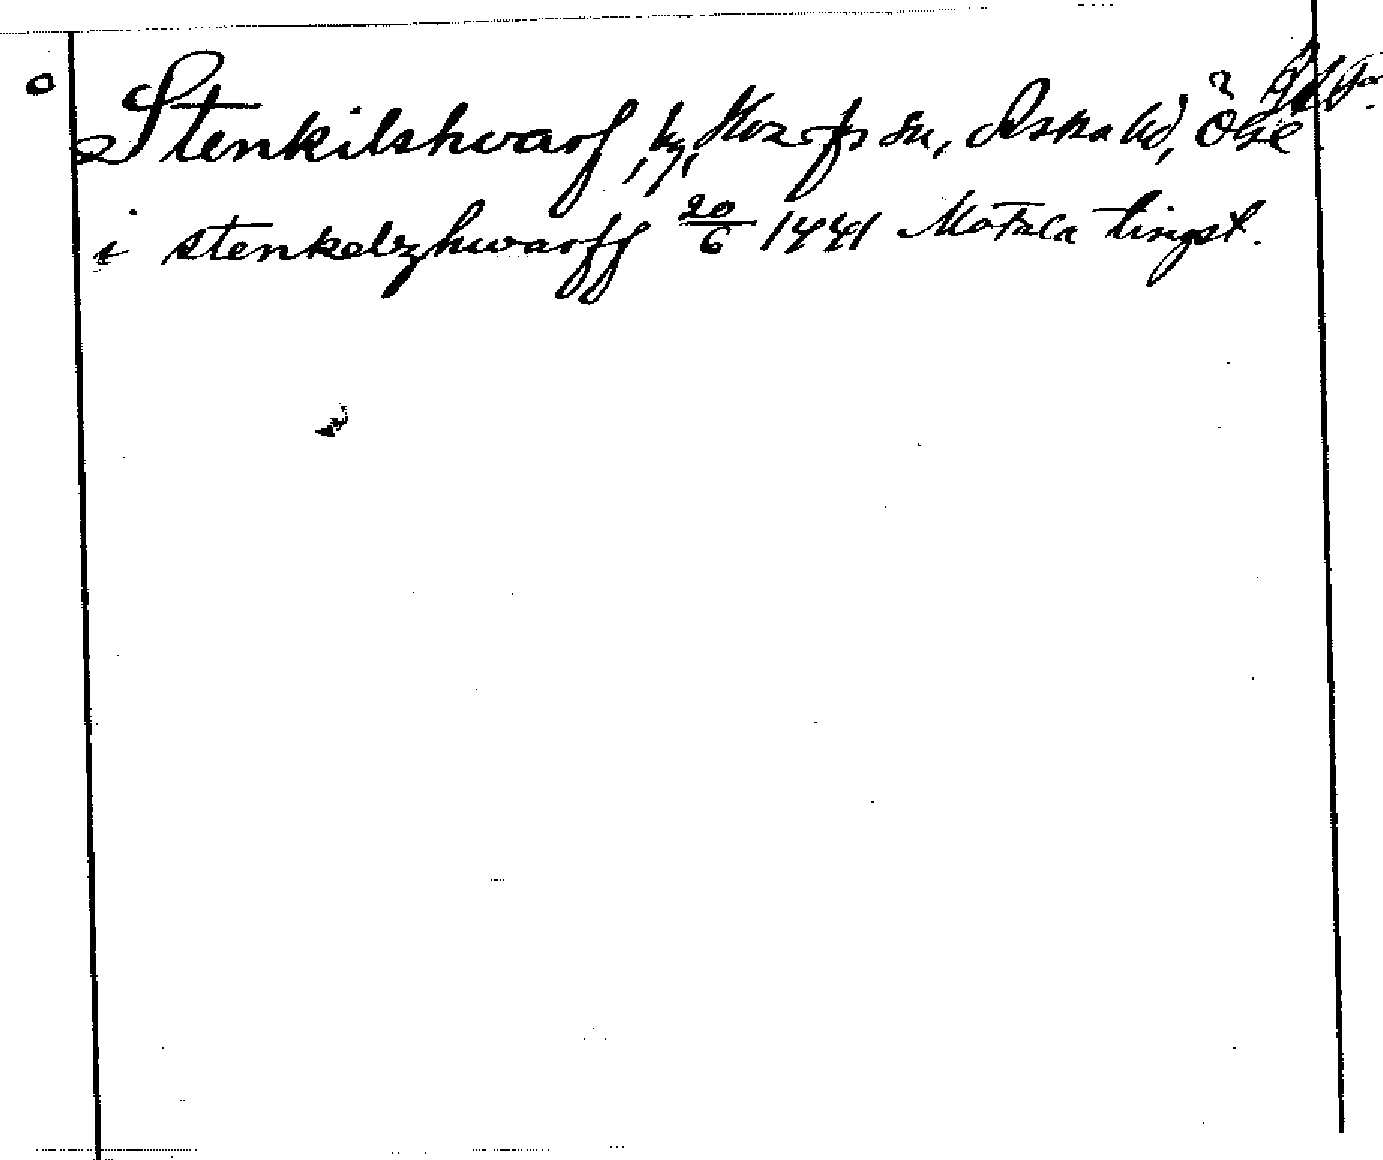 Stenkilshvarf, by, Kors sn, Aska hd, Ög
i stenkelzhwarff 20/6 1441 Motala tingst.